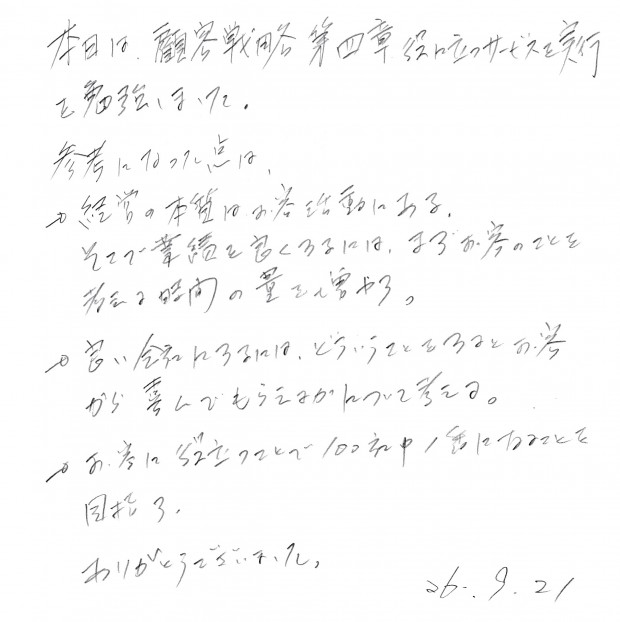 本日は、顧客戦略 第四章 役に立つサービスを実行
を勉強しました。
参考になった点は、
経営の本質はお客活動にある。
そこで業績を良くするには、まずお客のことを
考える時間の量を増やす。
良い会社にするには、どういうことをするとお客
から喜んでもらえるかについて考える。
お客に役立つことで100社中1番になることを
目指す。
ありがとうございました。
26.9.21